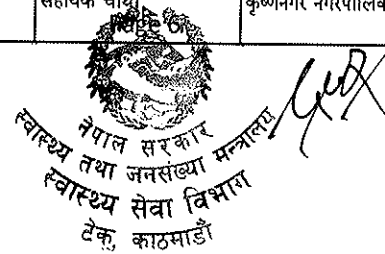 सहायक चौथो
कृष्णनगर नगरपालिक
नेपाल सरकार
स्वास्थ्य तथा जनसंख्या मन्त्रालय
स्वास्थ्य सेवा विभाग
टेकु, काठमाडौँ